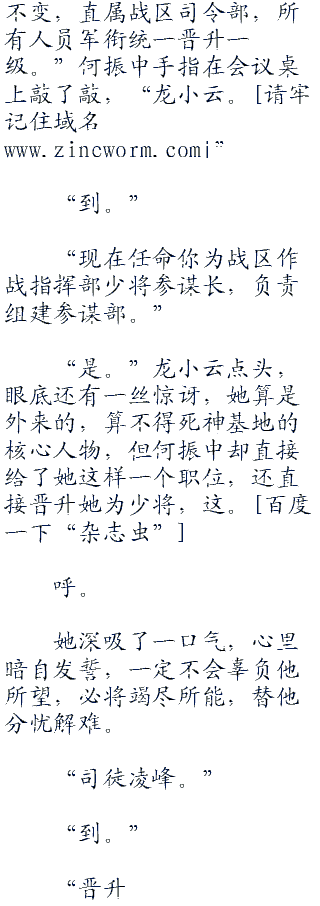 不变，直属战区司令部，所
有人员军衔统一晋升一
级。”何振中手指在会议桌
上敲了敲，“龙小云。[请牢
记住域名
www.zincworm.com|”
“到。”
“现在任命你为战区作
战指挥部少将参谋长，负责
组建参谋部。”
“是。”龙小云点头，
眼底还有一丝惊讶，她算是
外来的，算不得死神基地的
核心人物，但何振中却直接
给了她这样一个职位，还直
接晋升她为少将，这。[百度
一下“杂志虫”]
呼。
她深吸了一口气，心里
暗自发誓，一定不会辜负他
所望，必将竭尽所能，替他
分忧解难。
“司徒凌峰。”
“到。”
“晋升